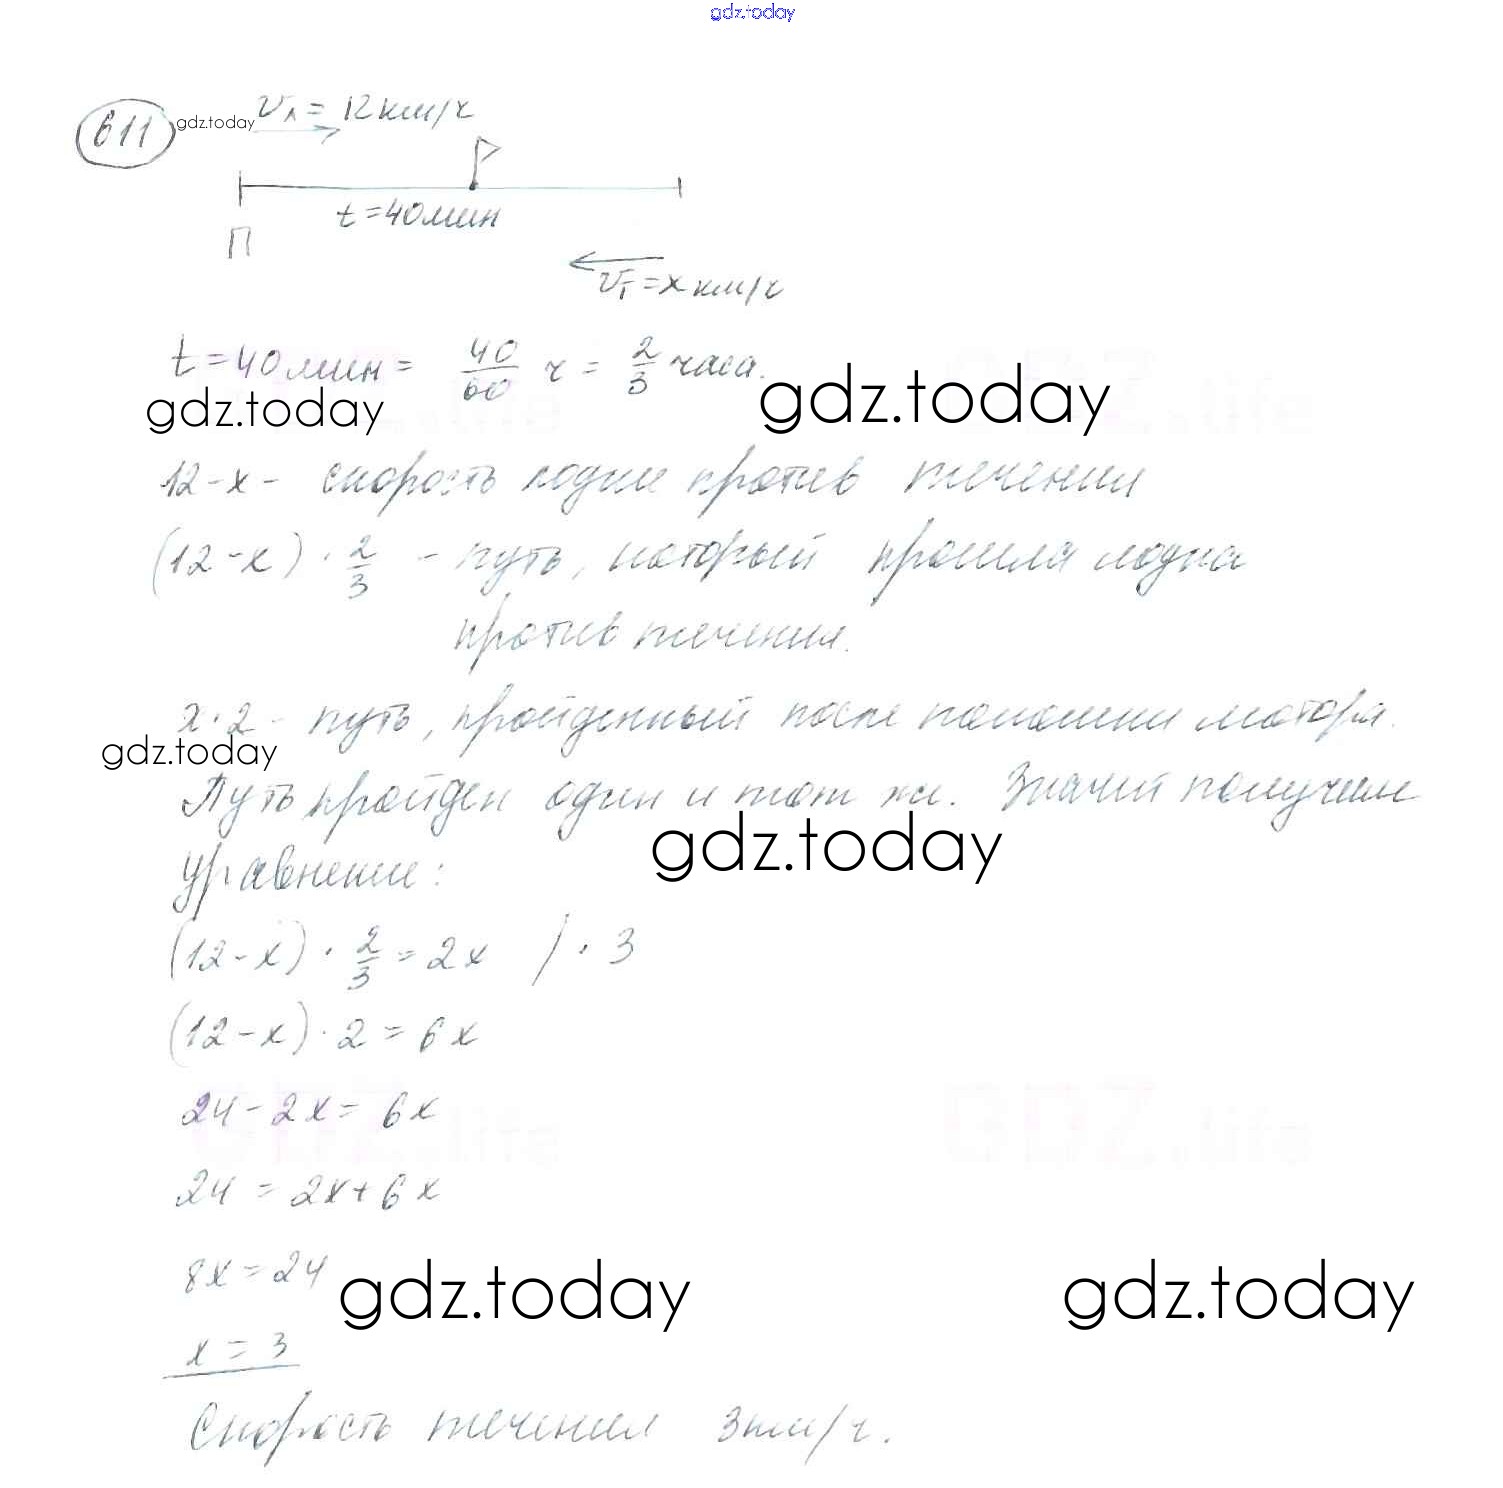 gdz.today
611 gdz.today vл = 12 км/ч
t = 40 мин
П
vт = x км/ч
t = 40 мин = 40/60 ч = 2/3 часа.
gdz.today gdz.today
12 - x - скорость лодки против течения
(12 - x) · 2/3 - путь, который прошла лодка
против течения.
x · 2 - путь, пройденный после поломки мотора.
gdz.today
Путь пройден один и тот же. Значит получим
gdz.today
уравнение:
(12 - x) · 2/3 = 2x / · 3
(12 - x) · 2 = 6x
24 - 2x = 6x
GDZ.life GDZ.life
24 = 2x + 6x
8x = 24
gdz.today gdz.today
x = 3
Скорость течения 3 км/ч.